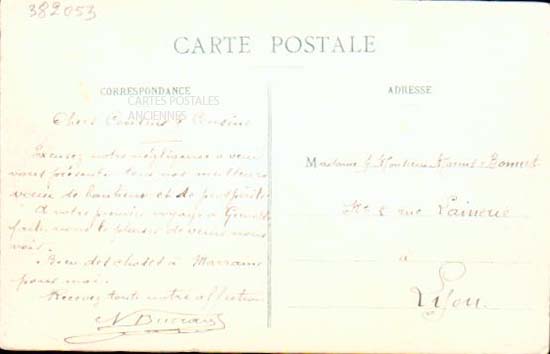 382053
CARTE POSTALE
CORRESPONDANCE
CARTES POSTALES
ANCIENNES
Chers Cousins & Cousine
Excusez notre négligence à venir
vous présenter tous nos meilleurs
voeux de bonheur et de prospérité
A votre premier voyage à
faites nous le plaisir de venir nous
voir.
Bien des choses à
pour moi.
Recevez toute notre affection
ADRESSE
Madame & Monsieur Bonnet
rue
à
Lyon